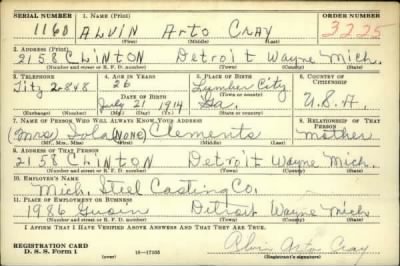 SERIAL NUMBER 1. NAME (Print) ORDER NUMBER
1168 ALVIN Arto CRAY 3225
(First) (Middle) (Last)
2. ADDRESS (Print)
2158 CLINTON Detroit Wayne Mich.
(Number and street or R. F. D. number) (Town) (County) (State)
3. TELEPHONE 4. AGE IN YEARS 5. PLACE OF BIRTH 6. COUNTRY OF CITIZENSHIP
26 Lumber City
Fitz 2848 DATE OF BIRTH (Town or county)
July 21 1914 Ga. U.S.A.
(Exchange) (Number) (Mo.) (Day) (Yr.) (State or country)
7. NAME OF PERSON WHO WILL ALWAYS KNOW YOUR ADDRESS 8. RELATIONSHIP OF THAT PERSON
(Mrs) Lola (NONE) Clements mother
(Mr., Mrs., Miss) (First) (Middle) (Last)
9. ADDRESS OF THAT PERSON
2158 CLINTON Detroit Wayne Mich.
(Number and street or R. F. D. number) (Town) (County) (State)
10. EMPLOYER'S NAME
Mich. Steel Casting Co.
11. PLACE OF EMPLOYMENT OR BUSINESS
Detroit Wayne Mich
(Number and street or R. F. D. number) (Town) (County) (State)
I AFFIRM THAT I HAVE VERIFIED ABOVE ANSWERS AND THAT THEY ARE TRUE.
REGISTRATION CARD
D. S. S. Form 1 16—17105 Alvin Arto Cray
(Registrant's signature)